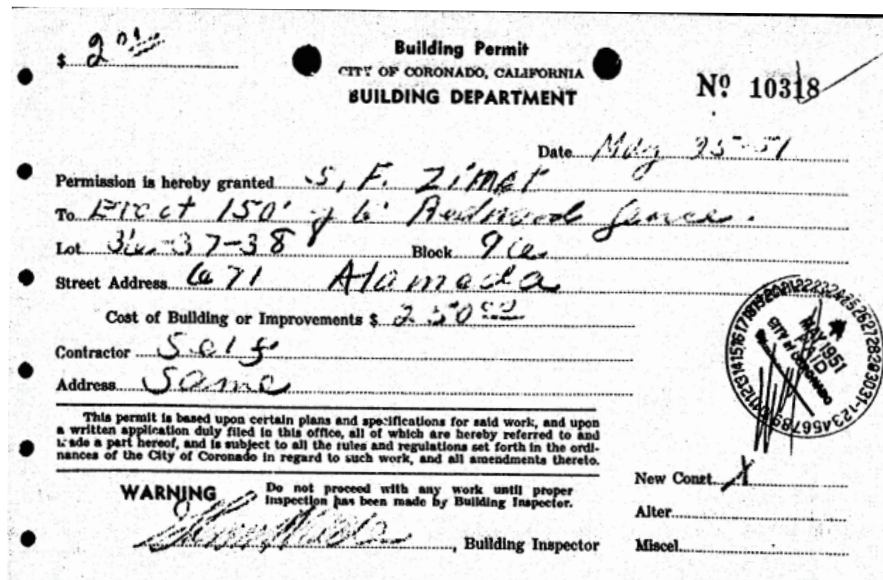 $ 2 00
Building Permit
CITY OF CORONADO, CALIFORNIA
BUILDING DEPARTMENT
Nº 10318
Date May 25-51
Permission is hereby granted S. F. Zimet
To Erect 150' of 6' Redwood fence.
Lot 36-37-38 Block 96
Street Address 671 Alameda
Cost of Building or Improvements $ 250 00
Contractor Self
Address Same
MAY 1951
PAID
CITY OF CORONADO
This permit is based upon certain plans and specifications for said work, and upon
a written application duly filed in this office, all of which are hereby referred to and
made a part hereof, and is subject to all the rules and regulations set forth in the ordi-
nances of the City of Coronado in regard to such work, and all amendments thereto.
WARNING Do not proceed with any work until proper
inspection has been made by Building Inspector.
, Building Inspector
New Const. X
Alter.
Miscel.